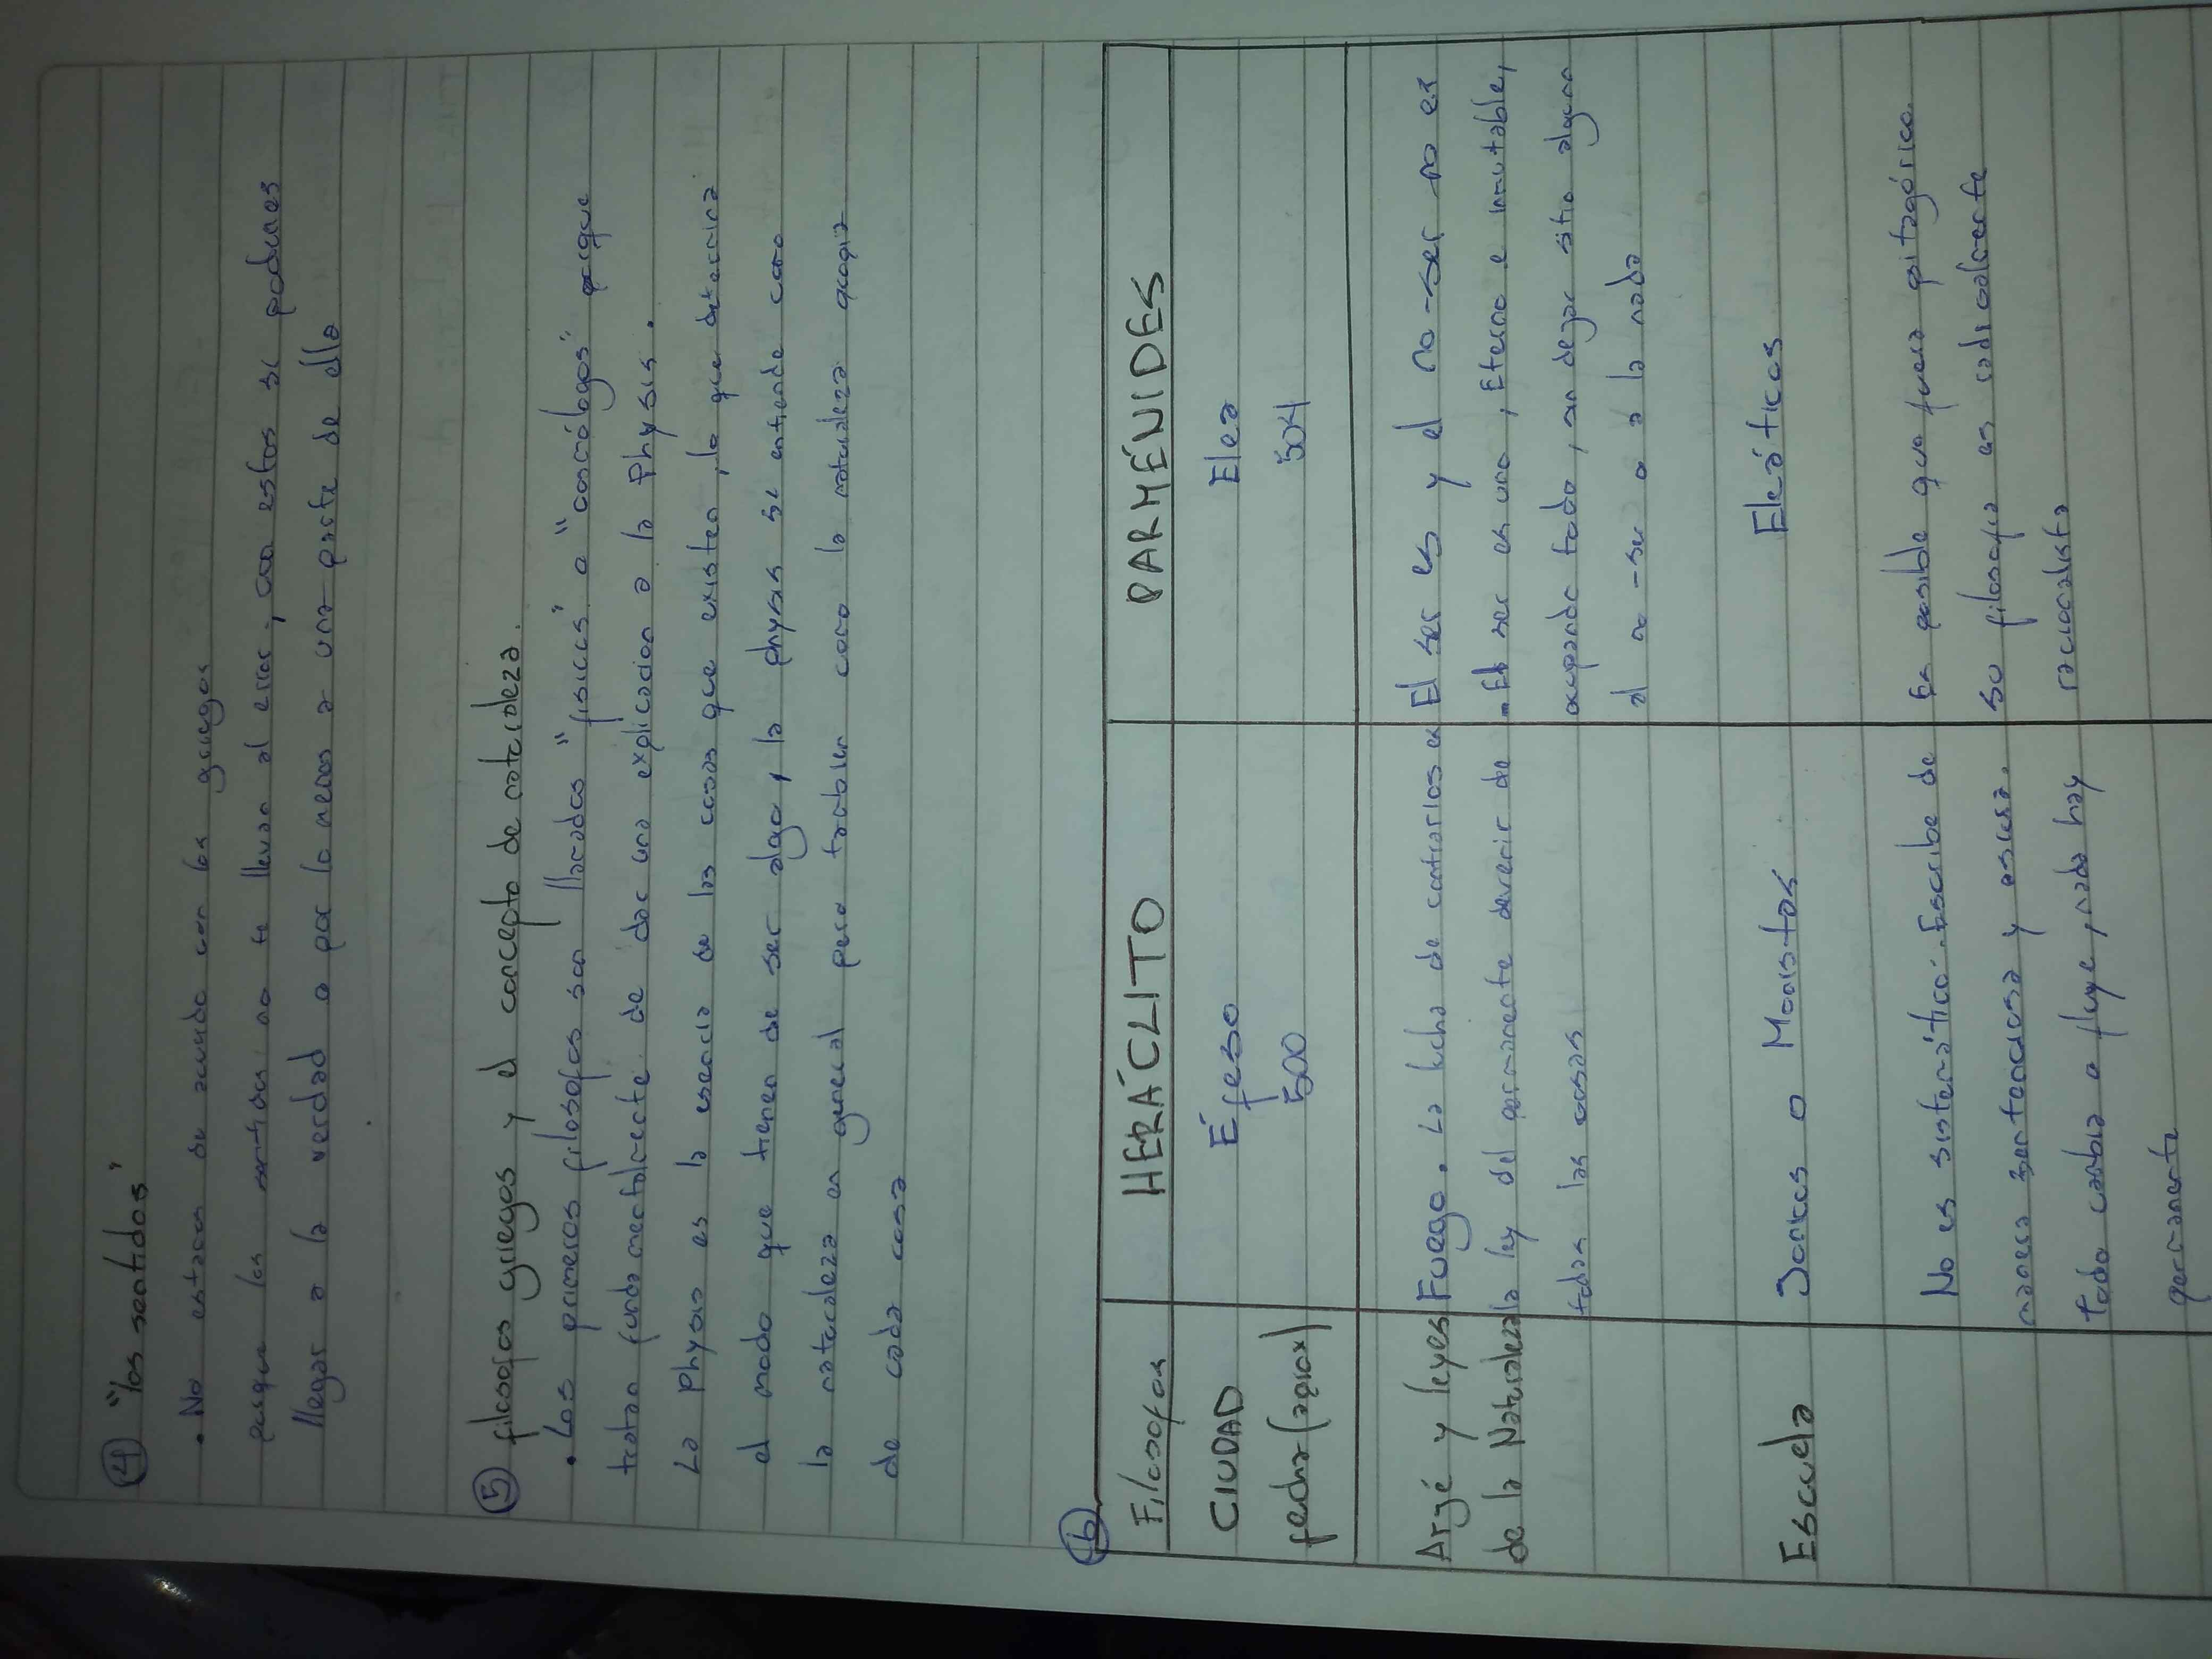 ④ "los sentidos"
. No estamos de acuerdo con los griegos
porque los sentidos no te llevan al error, con estos si podemos
llegar a la verdad o por lo menos a una parte de ella
⑤ filosofos griegos y el concepto de naturaleza.
. Los primeros filosofos son llamados "fisicos" o "cosmólogos" porque
tratan fundamentalmente de dar una explicacion a la Physis.
La Physis es la esencia de las cosas que existen, lo que determina
el modo que tienen de ser algo, la physis se entiende como
la naturaleza en general pero tambien como la naturaleza propia
de cada cosa
⑥
Filosofos HERÁCLITO PARMÉNIDES
CIUDAD Éfeso Elea
fecha (aprox) 500 504
Arjé y leyes Fuego. La lucha de contrarios es El ser es y el no-ser no es
de la Naturaleza la ley del permanente devenir de - El ser es uno, Eterno e inmutable,
todas las cosas ocupando todo, sin dejar sitio alguno
al no-ser o a la nada
Escuela Jonicos o Monistas Eleáticos
No es sistemático. Escribe de Es posible que fuera pitagórico.
manera sentenciosa y oscura. su filosofia es radicalmente
todo cambia o fluye, nada hay racionalista
permanente